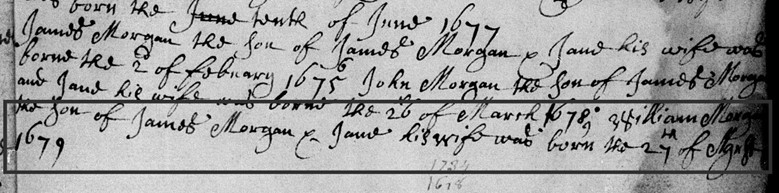 s born the June tenth of June 1677
James Morgan the son of James Morgan & Jane his wife was
borne the 2d of febuary 1675/6 John Morgan the son of James Morgan
and Jane his wife was borne the 26 of March 1678 William Morgan
the son of James Morgan & Jane his wife was born the 27th of
1679